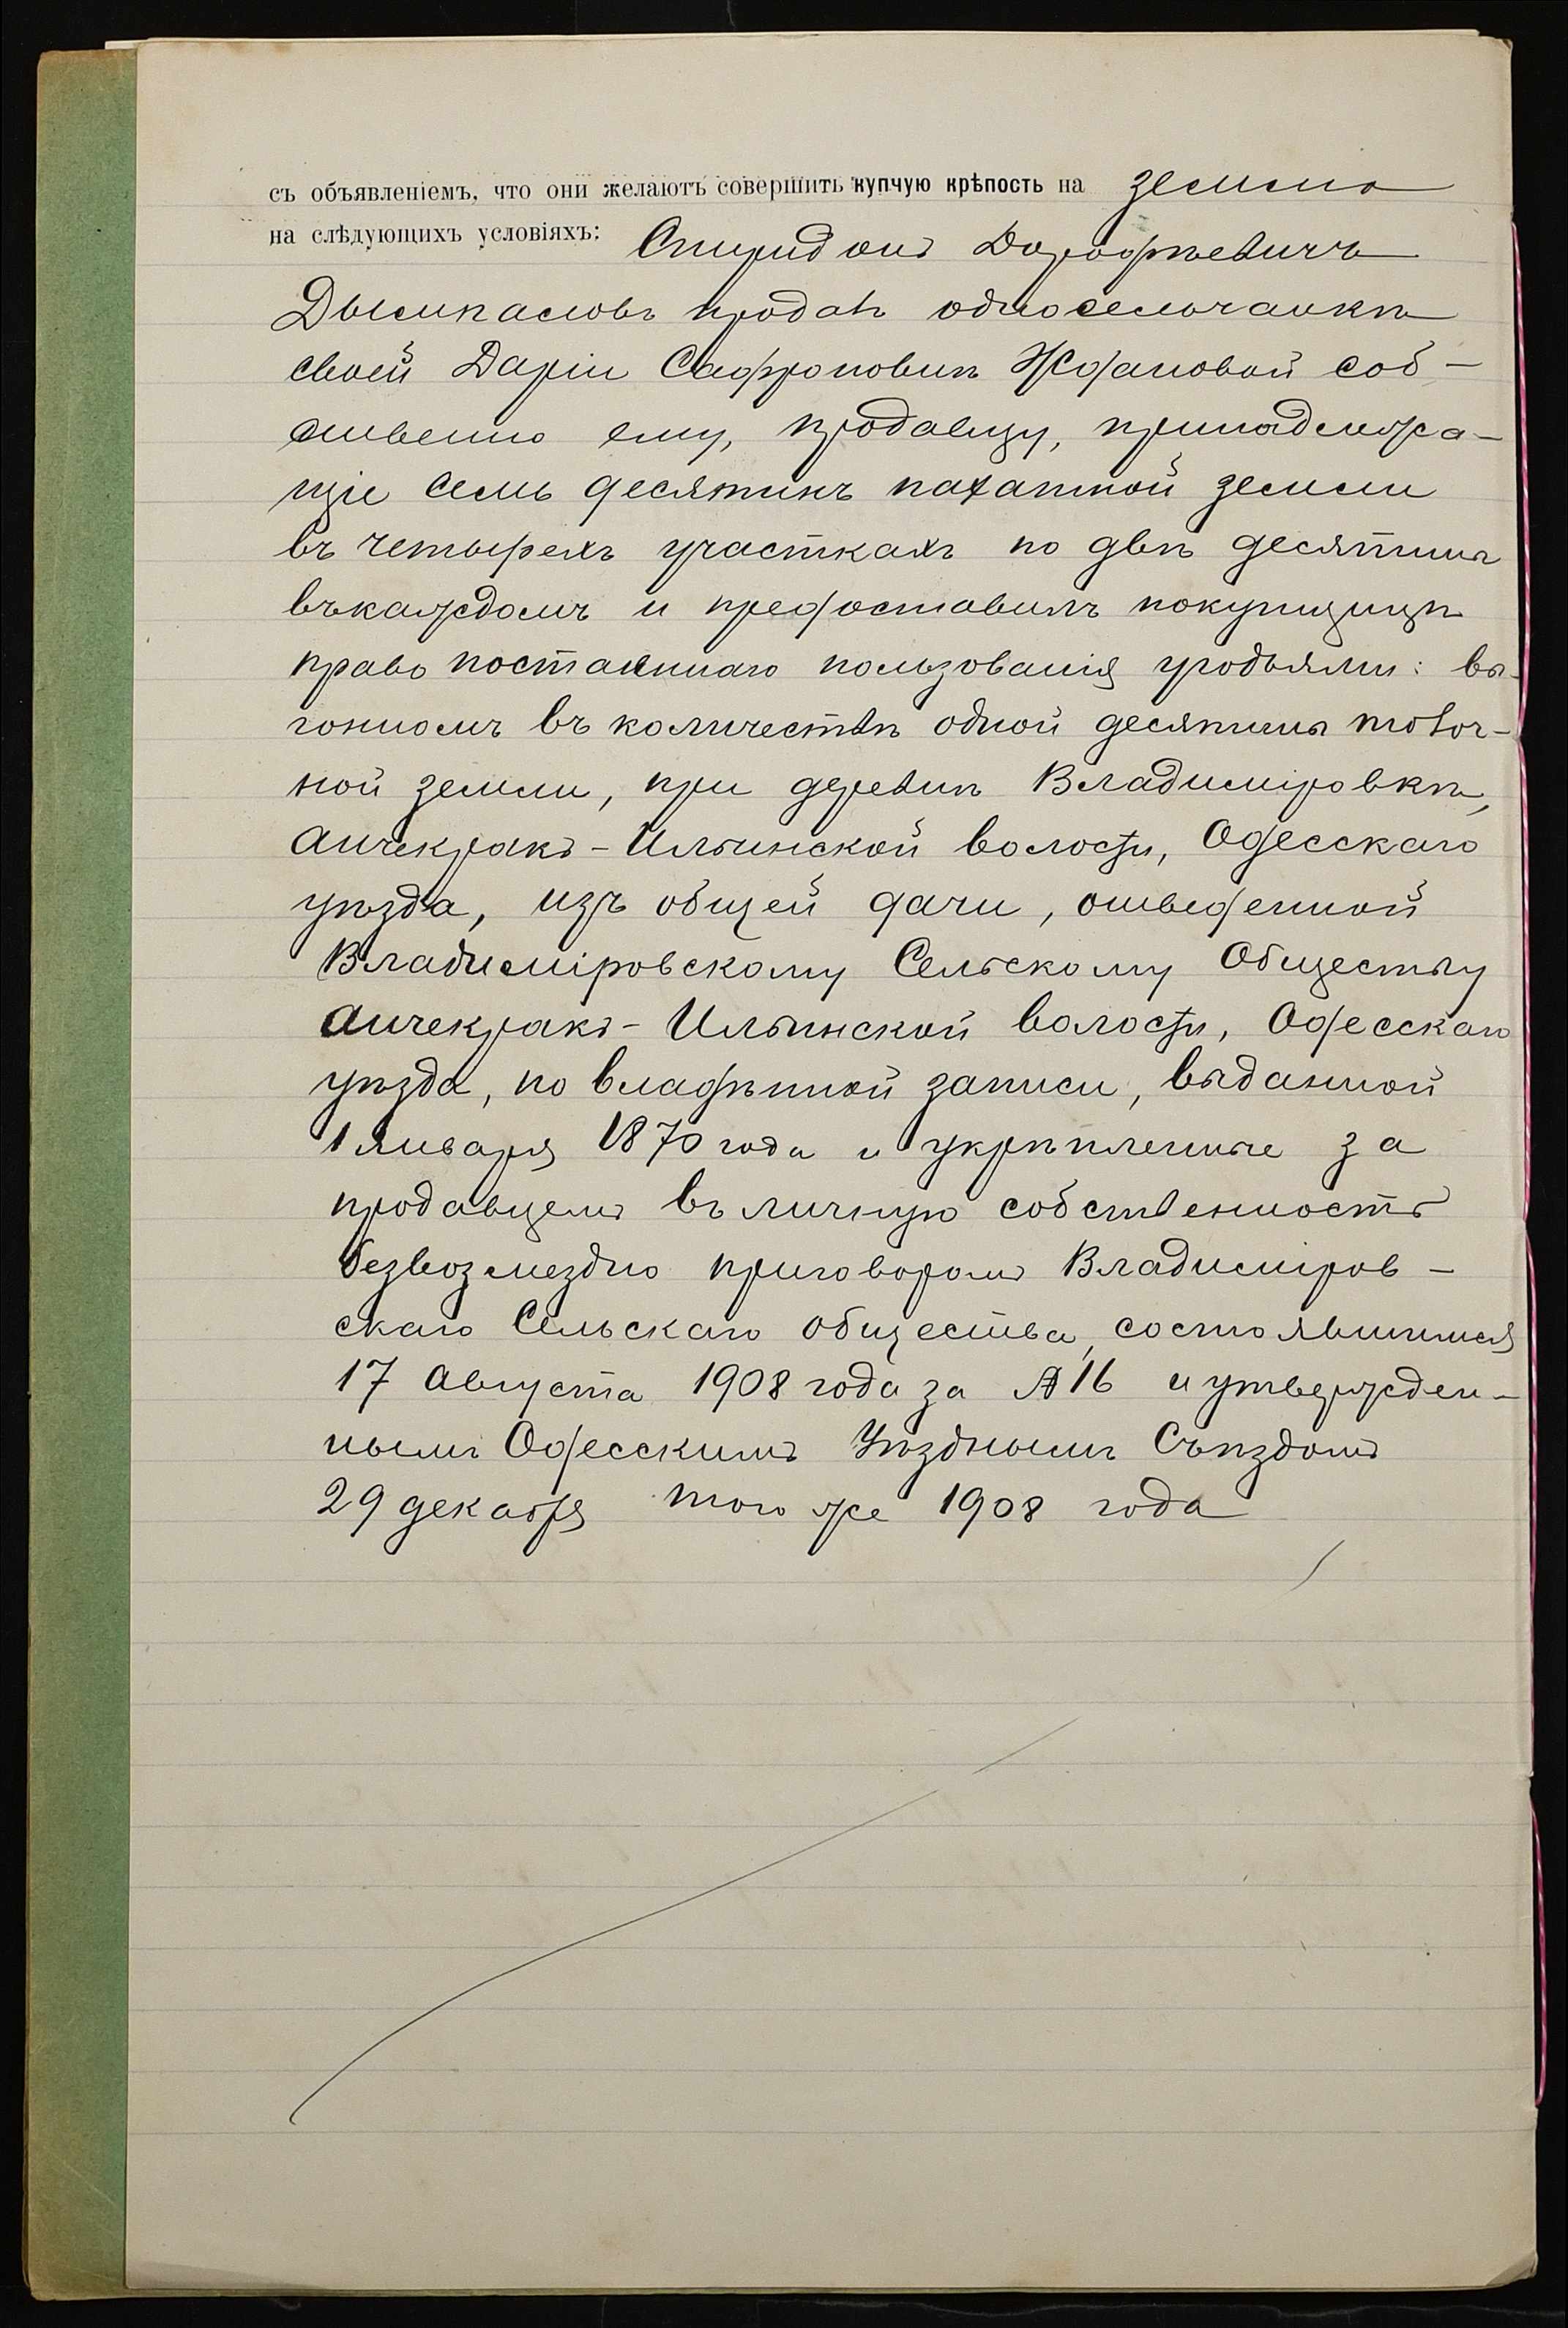 съ объявленіемъ, что они желаютъ совершить купчую крѣпость на землю
на слѣдующихъ условіяхъ: Спиридонъ Дорофѣевичъ
продалъ односельчанкѣ
своей Даріи Сафроновнѣ Ждановой соб-
ственно ему, продавцу, принадлежа-
щіе семь десятинъ пахатной земли
въ четырехъ участкахъ по двѣ десятины
въ каждомъ и предоставилъ покупщицѣ
право постояннаго пользованія угодьями: вы-
гономъ въ количествѣ одной десятины
ной земли, при деревнѣ Владиміровкѣ,
Анчекракъ-Ильинской волости, Одесскаго
уѣзда, изъ общей дачи, отведенной
Владиміровскому Сельскому Обществу
Анчекракъ-Ильинской волости, Одесскаго
уѣзда, по владѣнной записи, выданной
1 Января 1870 года и укрѣпленные за
продавцемъ въ личную собственность
безвозмездно приговоромъ Владиміров-
скаго Сельскаго общества, состоявшимся
17 Августа 1908 года за № 16 и утвержден-
нымъ Одесскимъ Уѣзднымъ Съѣздомъ
29 декабря того же 1908 года